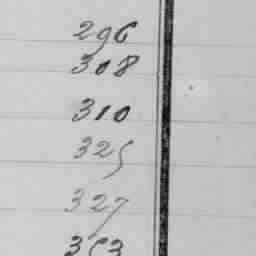 296
308
310
325
327
353